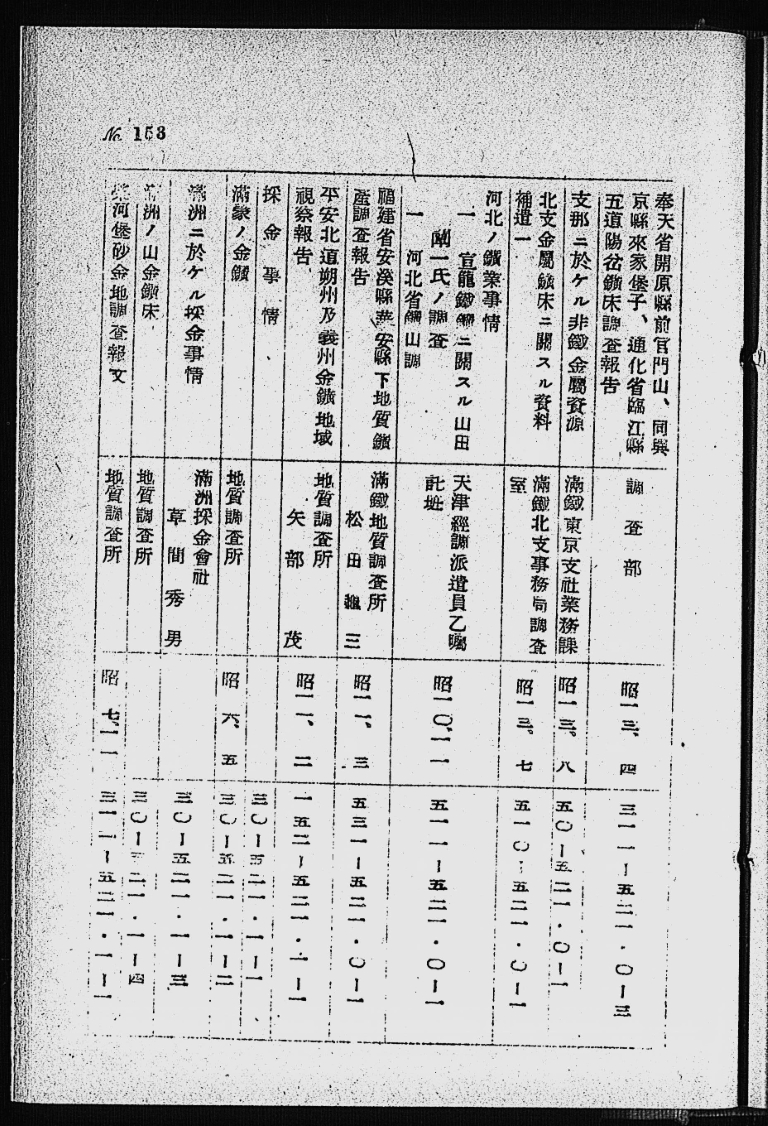 No. 153
奉天省開原縣前官門山、同興
京縣來家堡子、通化省臨江縣
五道陽岔鑛床調査報告
調査部
昭一三、四
三一一ー五二一・〇ー三
支那ニ於ケル非鐵金屬資源
滿鐵東京支社業務課
昭一三、八
五〇ー五二一・〇ー一
北支金屬鑛床ニ關スル資料
補遺一
滿鐵北支事務局調査
室
昭一三、七
五一〇ー五二一・〇ー一
河北ノ鑛業事情
一 宣龍鐵鑛ニ關スル山田
一氏ノ調査
一 河北省鑛山調
天津經調派遣員乙囑
託班
昭一〇、一一
五一一ー五二一・〇ー一
福建省安溪縣華安縣下地質鑛
產調査報告
滿鐵地質調査所
松田龜三
昭一二、三
五三一ー五二一・〇ー一
平安北道朔州及義州金鑛地域
視察報告
地質調査所
矢部茂
昭一一、二
一五二ー五二一・一ー一
採金事情
三〇ー五二一・一ー一
滿蒙ノ金鑛
地質調査所
昭六、五
三〇ー五二一・一ー二
滿洲ニ於ケル採金事情
滿洲採金會社
草間秀男
三〇ー五二一・一ー三
滿洲ノ山金鑛床
地質調査所
三〇ー五二一・一ー四
河堡砂金地調査報文
地質調査所
昭七、一一
三一一ー五二一・一ー一